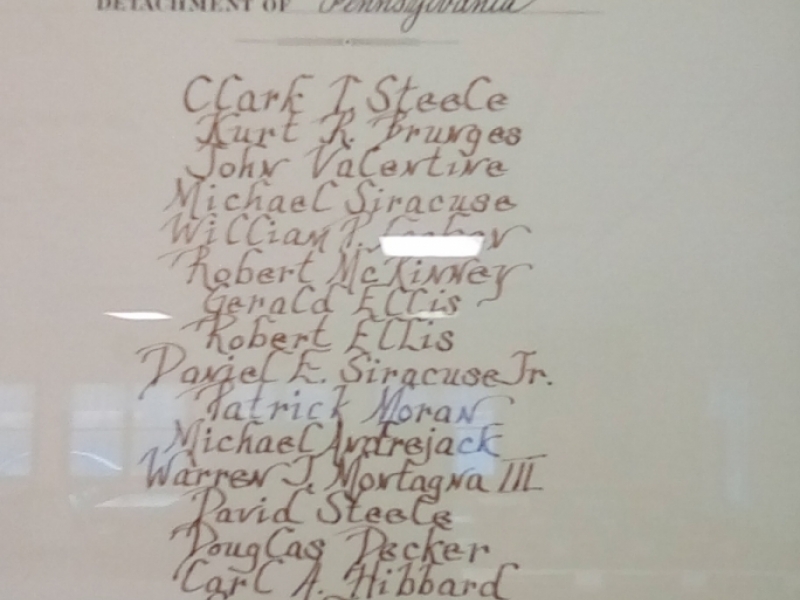 DETACHMENT OF Pennsylvania
Clark T. Steele
Kurt R. Brunges
John Valentine
Michael Siracuse
William P.
Robert McKinney
Gerald Ellis
Robert Ellis
Daniel E. Siracuse Jr.
Patrick Moran
Michael Andrejack
Warren J. Montagna III
David Steele
Douglas Decker
Carl A. Hibbard